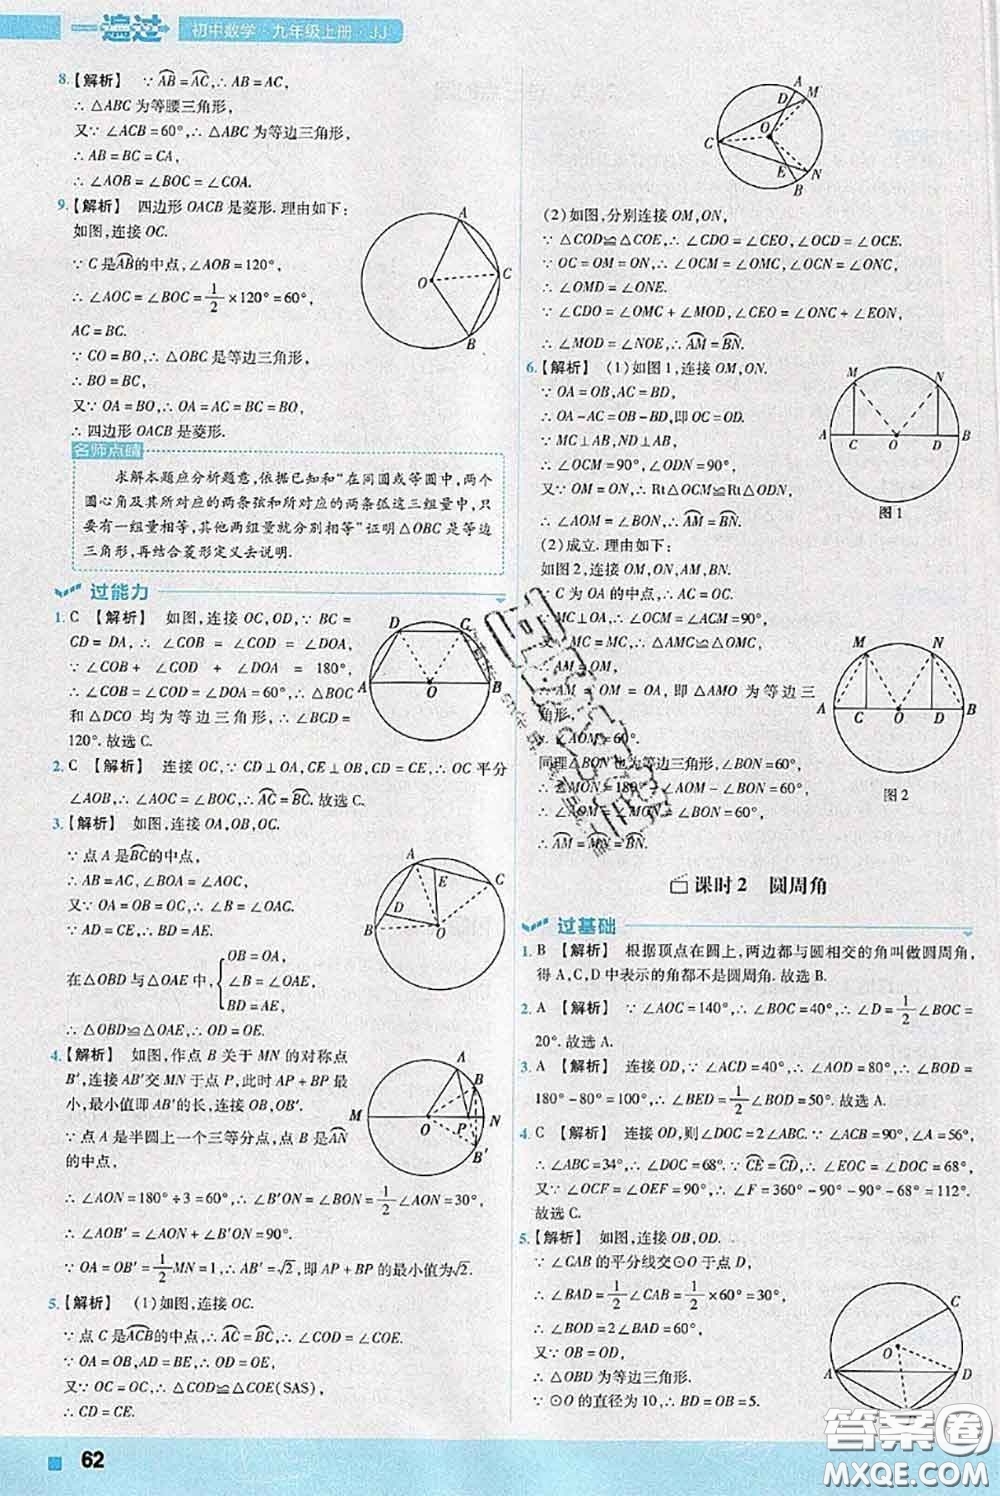 一遍过 初中数学·九年级上册·JJ
8.【解析】 ∵ A͡B=A͡C,∴ AB=AC,
∴ △ABC 为等腰三角形,
又∵ ∠ACB=60°,∴ △ABC 为等边三角形,
∴ AB=BC=CA,
∴ ∠AOB=∠BOC=∠COA.
9.【解析】 四边形 OACB 是菱形. 理由如下:
如图,连接 OC.
∵ C 是A͡B的中点,∠AOB=120°,
∴ ∠AOC=∠BOC=1/2×120°=60°,
AC=BC.
∵ CO=BO,∴ △OBC 是等边三角形,
∴ BO=BC,
又∵ OA=BO,∴ OA=AC=BC=BO,
∴ 四边形 OACB 是菱形.
A
O
C
B
名师点睛
求解本题应分析题意,依据已知和“在同圆或等圆中,两个
圆心角及其所对应的两条弦和所对应的两条弧这三组量中,只
要有一组量相等,其他两组量就分别相等”证明 △OBC 是等边
三角形,再结合菱形定义去说明.
过能力
1. C 【解析】 如图,连接 OC,OD,∵ BC=
CD=DA,∴ ∠COB=∠COD=∠DOA,
∵ ∠COB+∠COD+∠DOA=180°,
∴ ∠COB=∠COD=∠DOA=60°,∴ △BOC
和△DCO 均为等边三角形,∴ ∠BCD=
120°. 故选 C.
D C
A O B
2. C 【解析】 连接 OC,∵ CD⊥OA,CE⊥OB,CD=CE,∴ OC 平分
∠AOB,∴ ∠AOC=∠BOC,∴ A͡C=B͡C. 故选 C.
3.【解析】 如图,连接 OA,OB,OC.
∵ 点 A 是B͡C的中点,
∴ ∠AOB=∠AOC,
又∵ OB=OA=OC,
∴ ∠ABO=∠BAO=∠OAC,
∵ AD=CE,∴ BD=AE,
在△OBD 与△OAE 中, { OB=OA, ∠OBD=∠OAE, BD=AE,
∴ △OBD≌△OAE,∴ OD=OE.
A
E
C
D
B
O
4.【解析】 如图,作点 B 关于 MN 的对称点
B′,连接 AB′交 MN 于点 P,此时 AP+BP 最
小,最小值即 AB′的长,连接 OB,OB′.
∵ 点 A 是半圆上一个三等分点,点 B 是A͡N
的中点,
∴ ∠AON=180°÷3=60°,∴ ∠B′ON=∠BON=1/2∠AON=30°,
∴ ∠AOB′=∠AON+∠B′ON=90°,
∵ OA=OB′=1/2MN=1,∴ AB′=√2,即 AP+BP 的最小值为√2.
A
B
M O P N
B′
5.【解析】 (1)如图,连接 OC.
∵ 点 C 是A͡C͡B的中点,∴ A͡C=B͡C,∴ ∠COD=∠COE.
∵ OA=OB,AD=BE,∴ OD=OE,
又∵ OC=OC,∴ △COD≌△COE(SAS),
∴ CD=CE.
62
A
D M
C O
E N
B
(2)如图,分别连接 OM,ON,
∵ △COD≌△COE,∴ ∠CDO=∠CEO,∠OCD=∠OCE.
∵ OC=OM=ON,∴ ∠OCM=∠OMC,∠OCN=∠ONC,
∴ ∠OMD=∠ONE.
∵ ∠CDO=∠OMD+∠MOD,∠CEO=∠ONC+∠EON,
∴ ∠MOD=∠NOE,∴ A͡M=B͡N.
6.【解析】 (1)如图 1,连接 OM,ON.
∵ OA=OB,AC=BD,
∴ OA-AC=OB-BD,即 OC=OD.
∵ MC⊥AB,ND⊥AB,
∴ ∠OCM=90°,∠ODN=90°,
又∵ OM=ON,∴ Rt△OCM≌Rt△ODN,
∴ ∠AOM=∠BON,∴ A͡M=B͡N.
M N
A C O D B
图 1
(2)成立. 理由如下:
如图 2,连接 OM,ON,AM,BN.
∵ C 为 OA 的中点,∴ AC=OC,
∵ MC⊥OA,∴ ∠OCM=∠ACM=90°,
又∵ MC=MC,∴ △AMC≌△OMC,
∴ AM=OM,
∴ AM=OM=OA,即 △AMO 为等边三
角形,
∴ ∠AOM=60°.
同理∠BON 也为等边三角形,∠BON=60°,
∴ ∠MON=180°-∠AOM-∠BON=60°,
∴ ∠AOM=∠MON=∠BON,
∴ A͡M=M͡N=B͡N.
M N
A C O D B
图 2
课时 2 圆周角
过基础
1. B 【解析】 根据顶点在圆上,两边都与圆相交的角叫做圆周角,
得 A,C,D 中表示的角都不是圆周角. 故选 B.
2. A 【解析】 ∵ ∠AOC=140°,∴ ∠BOC=40°,∴ ∠D=1/2∠BOC=
20°. 故选 A.
3. A 【解析】 连接 OD,∵ ∠ACD=40°,∴ ∠AOD=80°,∴ ∠BOD=
180°-80°=100°,∴ ∠BED=1/2∠BOD=50°. 故选 A.
4. C 【解析】 连接 OD,则∠DOC=2∠ABC. ∵ ∠ACB=90°,∠A=56°,
∴ ∠ABC=34°,∴ ∠DOC=68°. ∵ C͡E=C͡D,∴ ∠EOC=∠DOC=68°.
又∵ ∠OCF=∠OEF=90°,∴ ∠F=360°-90°-90°-68°=112°.
故选 C.
5.【解析】 如图,连接 OB,OD.
∵ ∠CAB 的平分线交⊙O 于点 D,
∴ ∠BAD=1/2∠CAB=1/2×60°=30°,
∴ ∠BOD=2∠BAD=60°.
又∵ OB=OD,
∴ △OBD 为等边三角形.
∵ ⊙O 的直径为 10,∴ BD=OB=5.
C
O
A D
答案圈
MXQE.COM